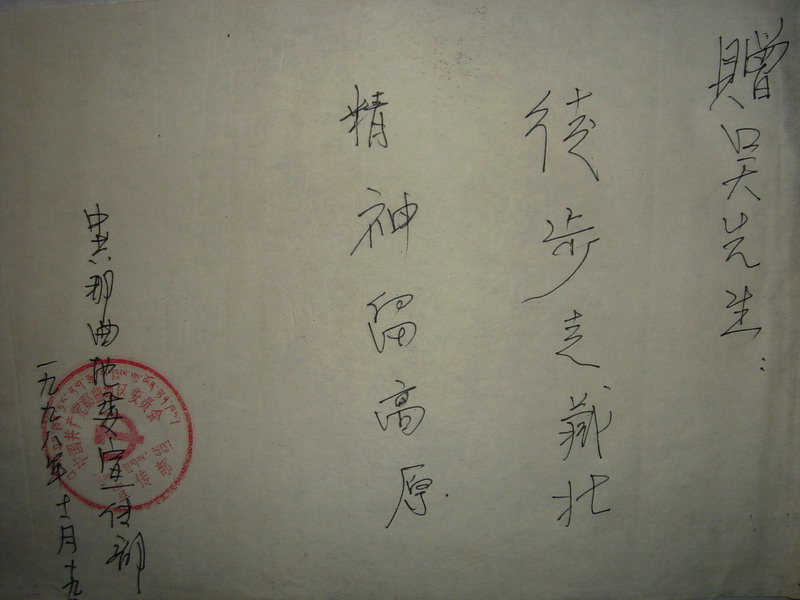 贈吴先生：
徒步走藏北
精神留高原.
中共那曲地委宣传部
一九九八年十一月十九
中国共产党那曲地区委员会
宣传部